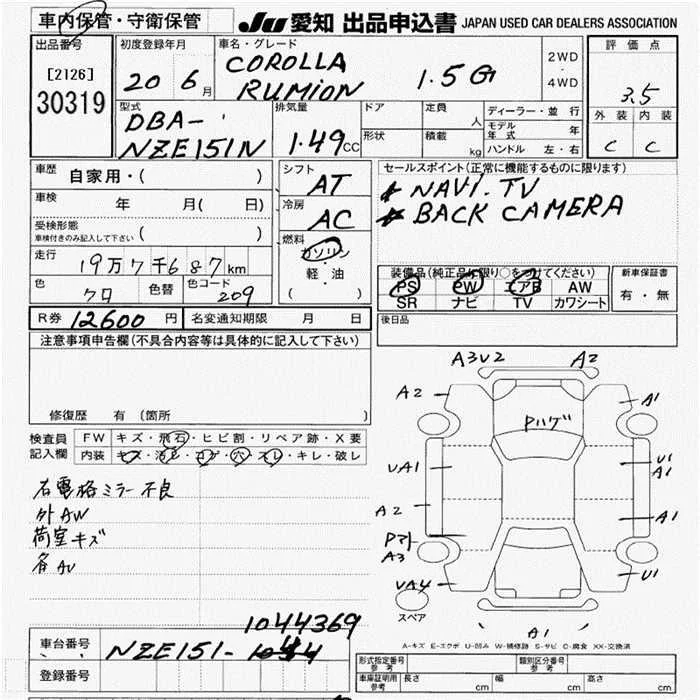 車内保管・守衛保管
JU 愛知 出品申込書 JAPAN USED CAR DEALERS ASSOCIATION
出品番号
[2126]
30319
初度登録年月
20 6月
車名・グレード
COROLLA
RUMION 1.5G
2WD
・
4WD
評価点
3.5
外装 内装
C C
型式
DBA-
NZE151N
排気量
1.49CC
ドア
形状
定員 人
積載 kg
ディーラー・並行
モデル年式 年
ハンドル 左・右
車歴
自家用・( )
車検 年 月( 日)
受検形態
車検付きのみ記入して下さい ( )
走行
19万7千687km
色 クロ 色替 色コード 209
シフト
AT
冷房
AC
燃料
ガソリン
・
軽・油
( )
セールスポイント(正常に機能するものに限ります)
* NAVI.TV
* BACK CAMERA
装備品(純正品に限り○をつけてください)
PS PW エアB AW
SR ナビ TV カワシート
新車保証書
有・無
R券 12600円 名変通知期限 月 日
後日品
注意事項申告欄(不具合内容等は具体的に記入して下さい)
修復歴 有(箇所 )
検査員
記入欄
FW キズ・飛石・ヒビ割・リペア跡・X要
内装 キズ・汚レ・コゲ・穴・スレ・キレ・破レ
右電格ミラー不良
外AW
荷室キズ
各AU
A3U2 A2
A2 A1
Pハゲ
UA1 U1
A1
A2 A1
A3
UA4 U1
スペア
A1
A-キズ E-エクボ U-凹み W-補修跡 S-サビ C-腐食 XX-交換済
1044369
車台番号 NZE151-
登録番号
形式指定番号 参考
類別区分番号 参考
車庫証明用 参考 長さ cm 幅 cm 高さ cm